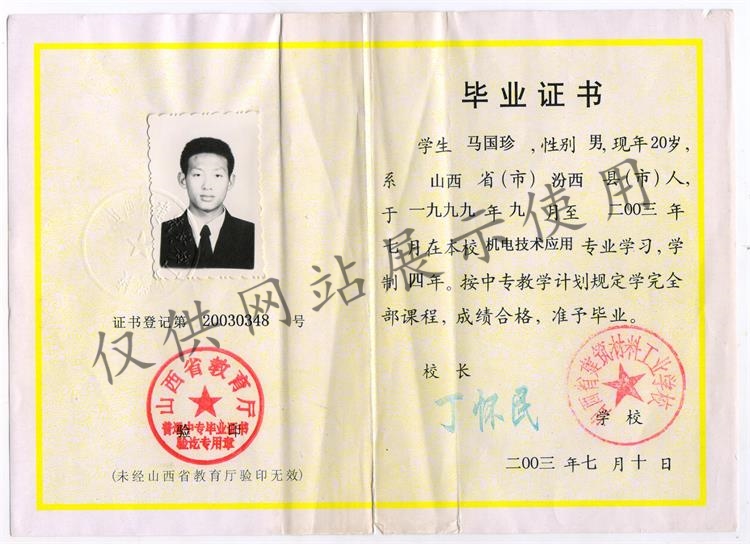 毕业证书
学生 马国珍 ,性别 男,现年20岁,
系 山西 省(市) 汾西 县(市)人,
于 一九九九 年 九 月至 二00三 年
七月在本校 机电技术应用 专业学习,学
制 四 年。按中专教学计划规定学完全
部课程,成绩合格,准予毕业。
校 长
丁怀民
学 校
山西省建筑材料工业学校
二00三 年 七 月 十 日
证书登记第 20030348 号
山西省教育厅
普通中专毕业证书
验讫专用章
验 印
(未经山西省教育厅验印无效)
仅供网站展示使用